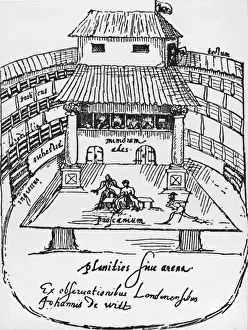 tectum
porticus
orchestra
mimorum
ædes.
ingressus
proscænium
planities siue arena
Ex obseruationibus Londinensibus
Johannis de witt